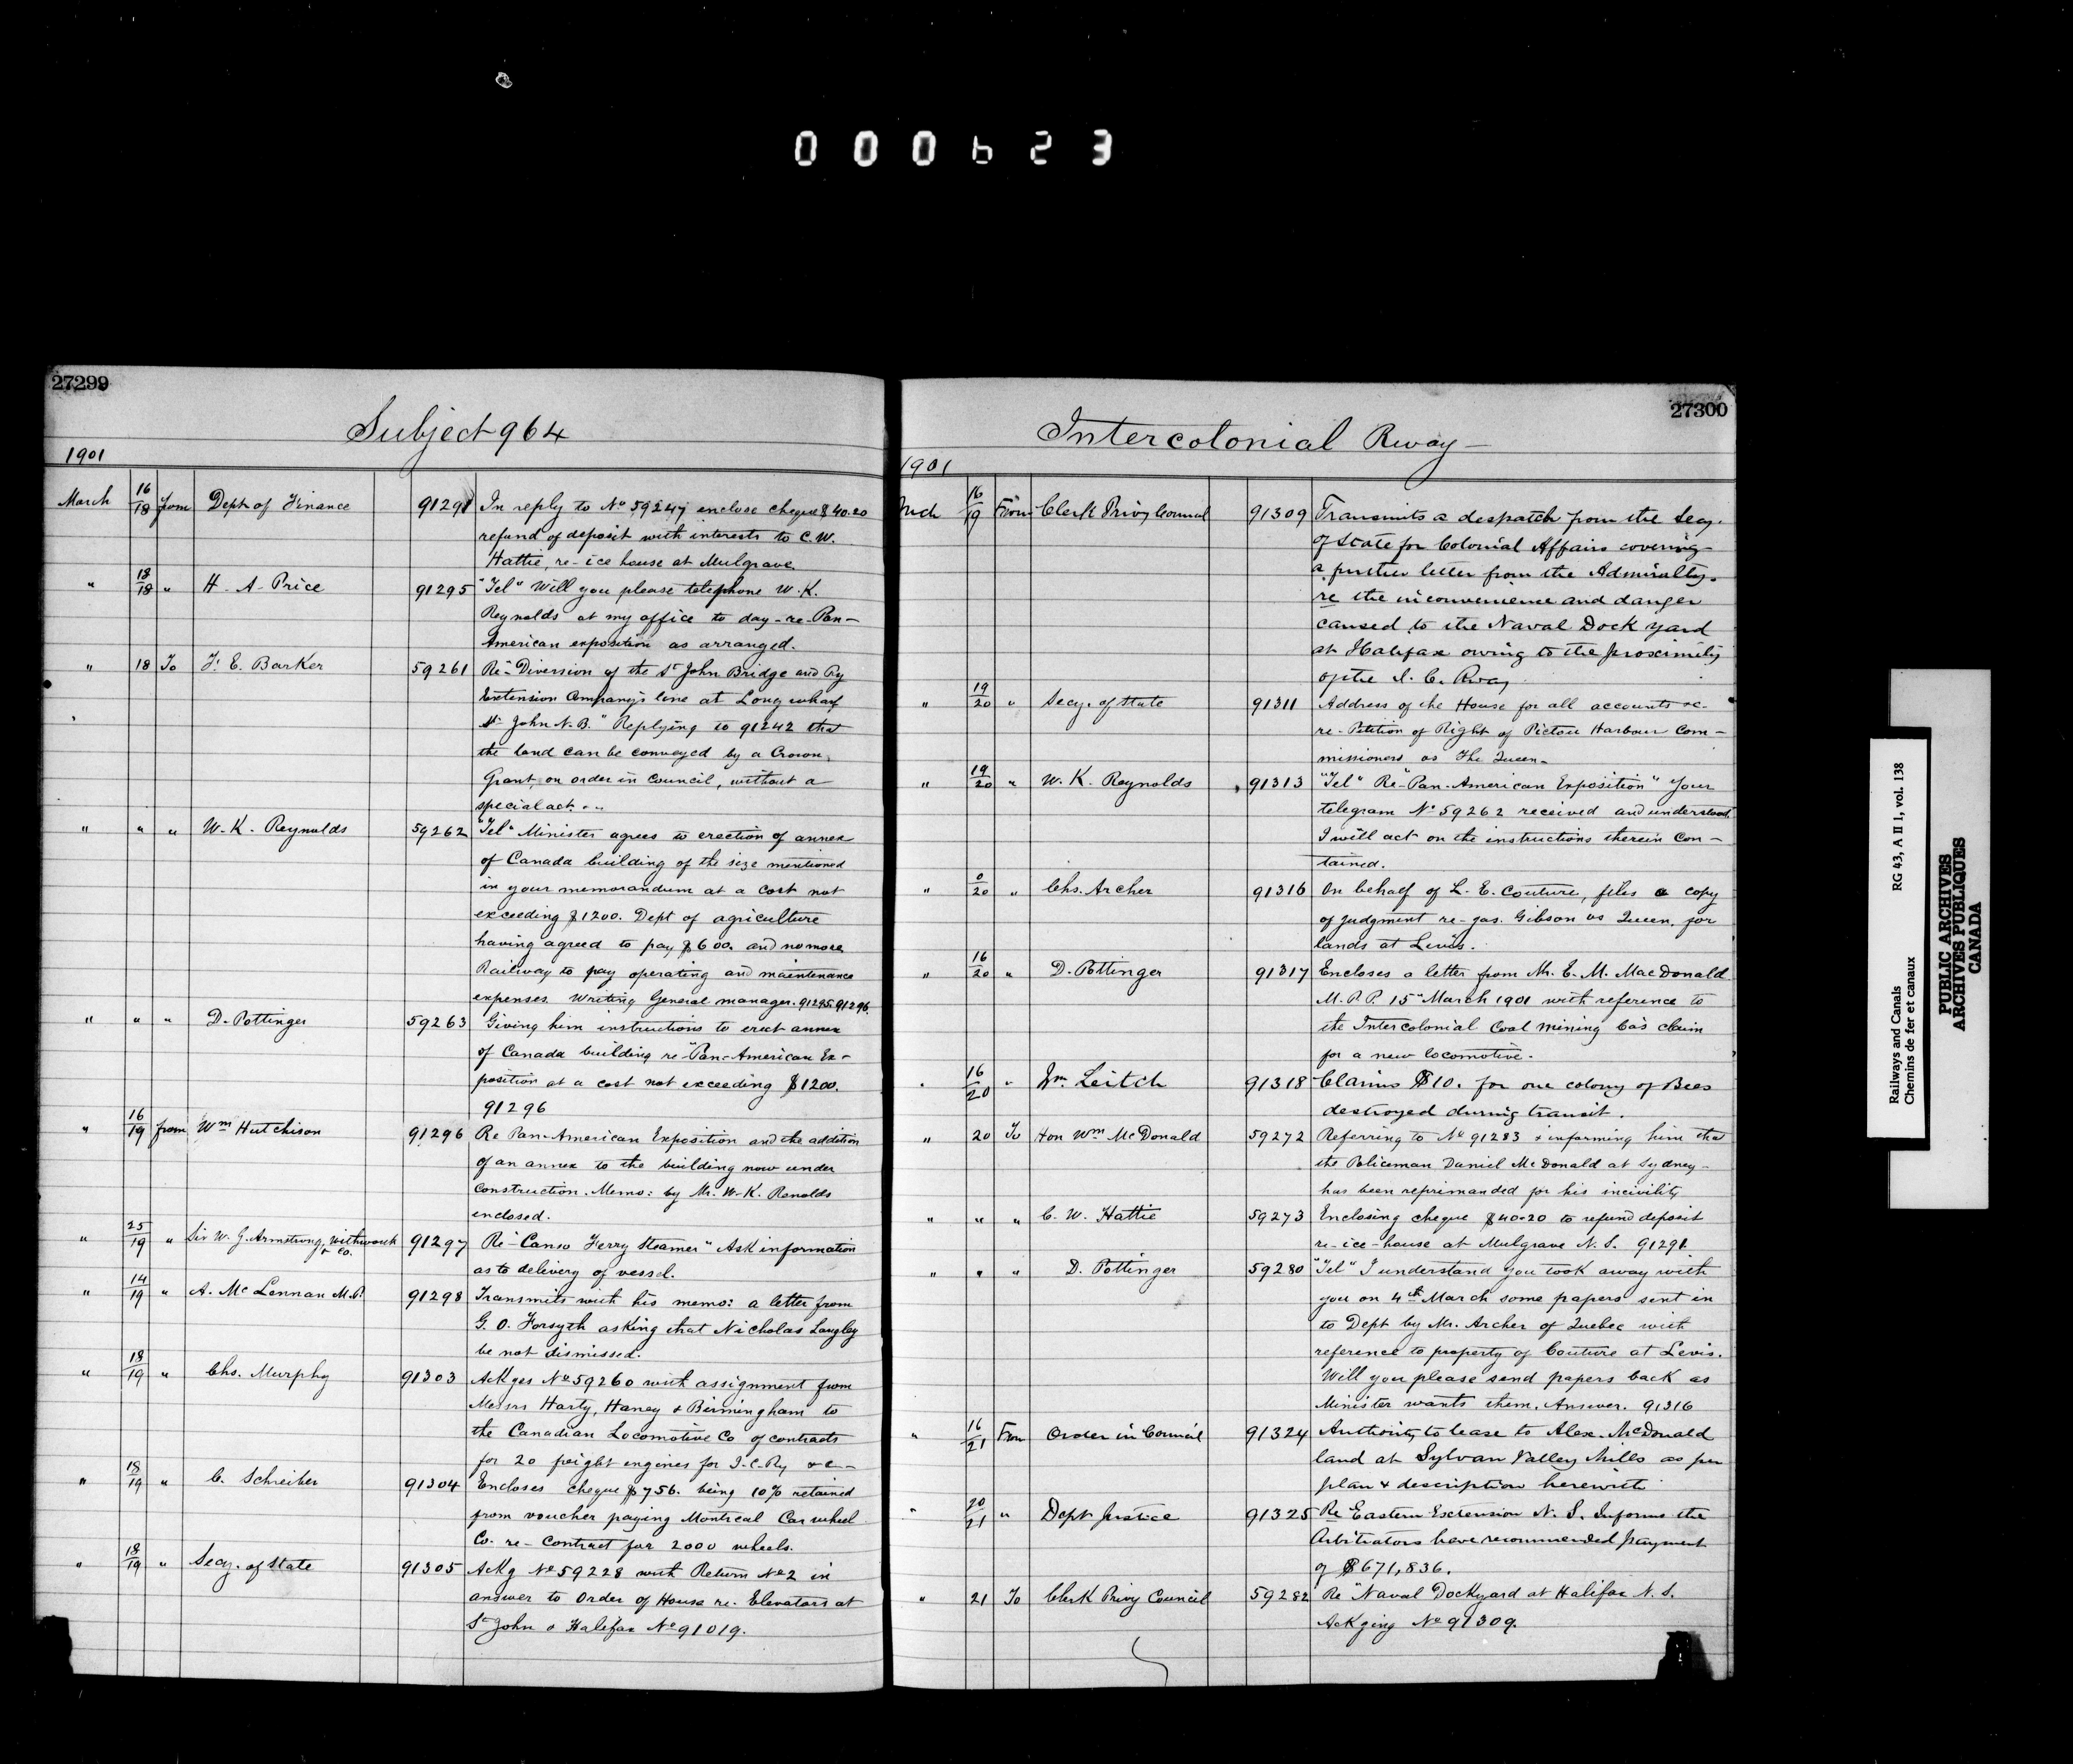 000623
27299
Subject 964
1901
March 16/18 from Dept of Finance 91291 In reply to No 59247 enclose cheque $40.20
refund of deposit with interests to C.W.
Hattie, re-ice house at Mulgrave
" 18/18 " H. A. Price 91295 "Tel" Will you please telephone W.K.
Reynolds at my office to day-re-Pan-
American exposition as arranged.
" 18 To F. E. Barker 59261 Re "Diversion of the St John Bridge and Ry
Extension Company's line at Long wharf
St John N.B." Replying to 91242 that
the land can be conveyed by a Crown
Grant, on order in Council, without a
special act.
" " " W.K. Reynolds 59262 "Tel" Minister agrees to erection of annex
of Canada building of the size mentioned
in your memorandum at a cost not
exceeding $1200. Dept of agriculture
having agreed to pay $600. and no more
Railway to pay operating and maintenance
expenses. Writing General manager. 91295-91296.
" " " D. Pottinger 59263 Giving him instructions to erect annex
of Canada building re-"Pan-American Ex-
position at a cost not exceeding $1200.
91296
" 16/19 from Wm Hutchison 91296 Re Pan-American Exposition and the addition
of an annex to the building now under
construction. Memo: by Mr. W.K. Renolds
enclosed.
" 25/19 " Sir W. G. Armstrong, Withwork & Co. 91297 Re "Canso Ferry Steamer" Ask information
as to delivery of vessel.
" 14/19 " A. McLennan M.P. 91298 Transmits with his memo: a letter from
G. O. Forsyth asking that Nicholas Langley
be not dismissed.
" 18/19 " Chs. Murphy 91303 Ackges No 59260 with assignment from
Messrs Harty, Haney & Birmingham to
the Canadian Locomotive Co of contracts
for 20 freight engines for I.C.Ry &c-
" 18/19 " C. Schreiber 91304 Encloses cheque $756. being 10% retained
from voucher paying Montreal Car wheel
Co. re-Contract for 2000 wheels.
" 18/19 " Secy. of State 91305 Ackg No 59228 with Return No 2 in
answer to Order of House re. Elevators at
St John & Halifax No 91019.
27300
Intercolonial Rway-
1901
Mch 16/19 From Clerk Privy Council 91309 Transmits a despatch from the Secy.
of State for Colonial Affairs covering
a further letter from the Admiralty.
re the inconvenience and danger
caused to the Naval Dock yard
at Halifax owing to the proximity
of the I. C. Rway
" 19/20 " Secy. of State 91311 Address of the House for all accounts &c.
re-Petition of Right of Pictou Harbour Com-
missioners vs The Queen.
" 19/20 " W. K. Reynolds 91313 "Tel" Re "Pan-American Exposition" Your
telegram No 59262 received and understood
I will act on the instructions therein con-
tained.
" 0/20 " Chs. Archer 91316 On behalf of L. E. Couture, files a copy
of judgment re-Jas. Gibson vs Queen, for
lands at Levis.
" 16/20 " D. Pottinger 91317 Encloses a letter from Mr. E. M. MacDonald
M.P.P. 15" March 1901 with reference to
the Intercolonial Coal Mining Co's claim
for a new locomotive.
" 16/20 " Wm Leitch 91318 Claims $10. for one colony of Bees
destroyed during transit.
" 20 To Hon Wm McDonald 59272 Referring to No 91283 & informing him that
the Policeman Daniel McDonald at Sydney-
has been reprimanded for his incivility
" " " C. W. Hattie 59273 Enclosing cheque $40.20 to refund deposit
re-ice-house at Mulgrave N.S. 91291
" " " D. Pottinger 59280 "Tel" I understand you took away with
you on 4th March some papers sent in
to Dept by Mr. Archer of Quebec with
reference to property of Couture at Levis.
Will you please send papers back as
Minister wants them. Answer. 91316
" 16/21 From Order in Council 91324 Authority to lease to Alex. McDonald
land at Sylvan Valley Mills as per
plan & description herewith
" 20/21 " Dept Justice 91325 Re "Eastern Extension N.S. Informs the
Arbitrators have recommended payment
of $671,836.
" 21 To Clerk Privy Council 59282 Re "Naval Dockyard at Halifax N.S.
Ackging No 91309.
Railways and Canals
Chemins de fer et canaux
RG 43, A II 1, vol. 138
PUBLIC ARCHIVES
ARCHIVES PUBLIQUES
CANADA